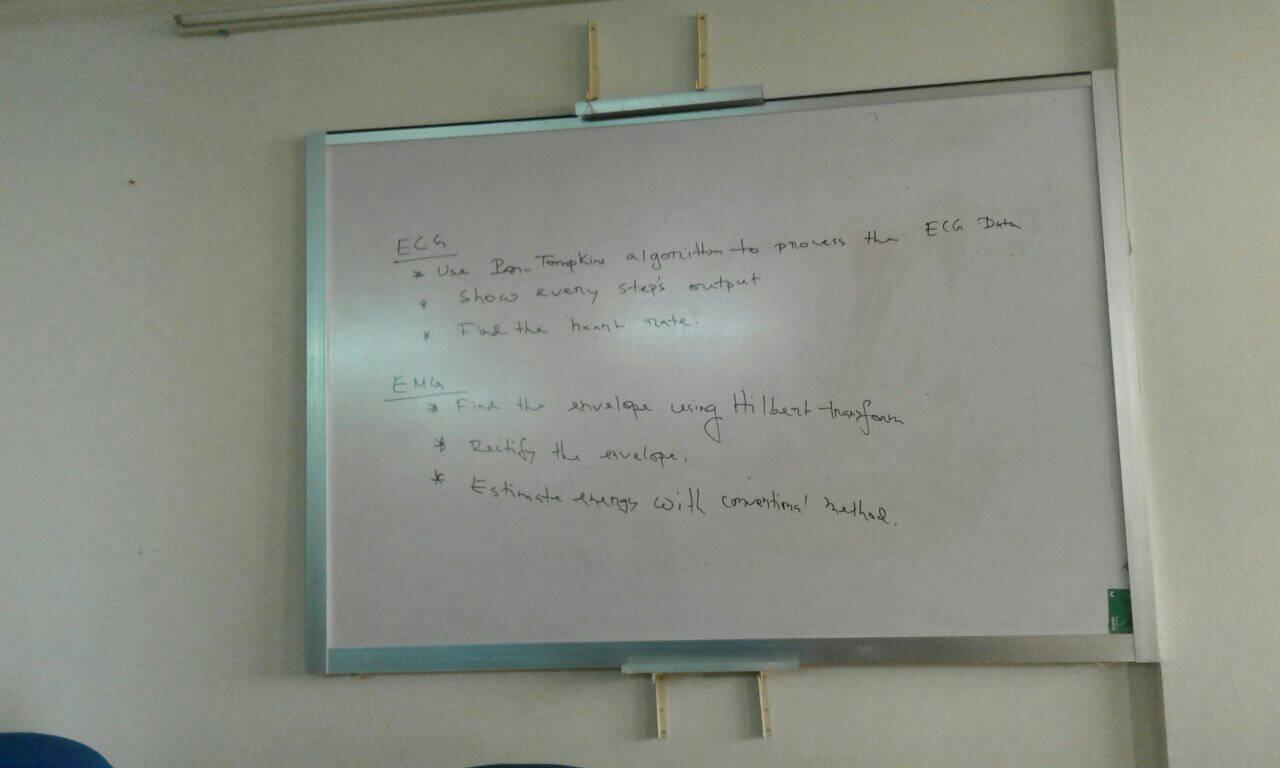 ECG
* Use Pan-Tompkins algorithm to process the ECG Data
* Show every step's output
* Find the heart rate.
EMG
* Find the envelope using Hilbert transform
* Rectify the envelope.
* Estimate energy with conventional method.